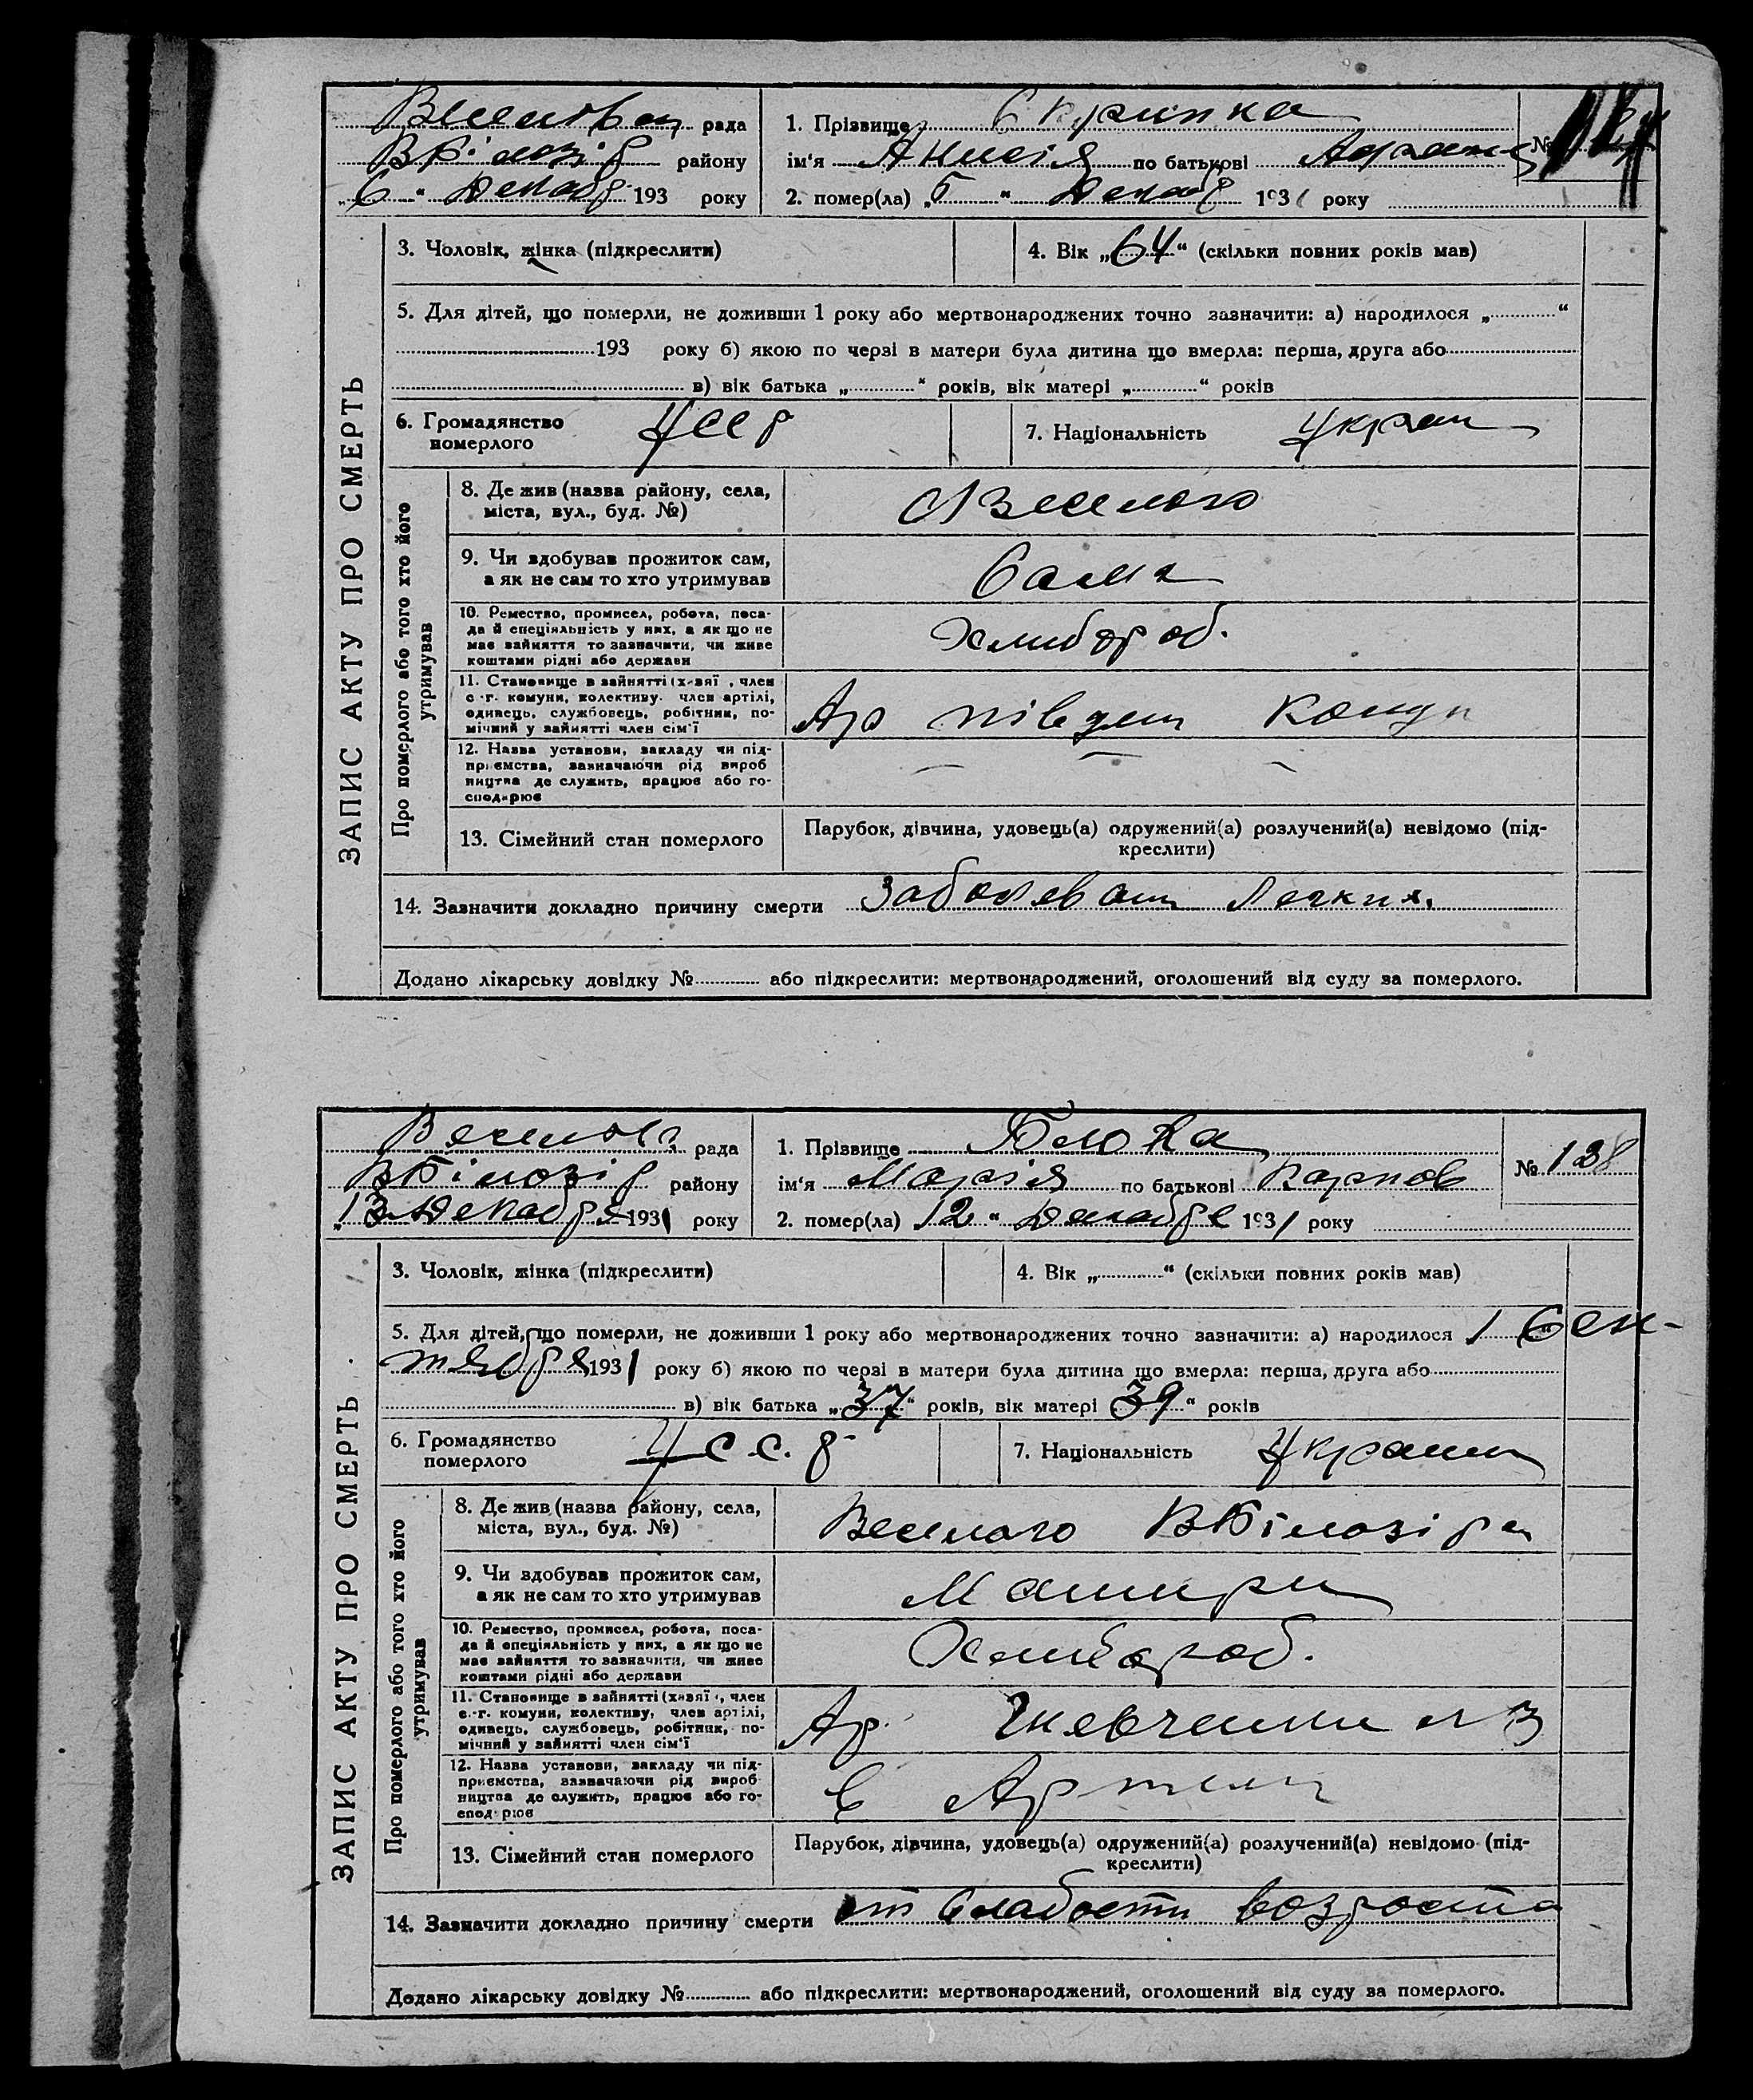 ЗАПИС АКТУ ПРО СМЕРТЬ
рада
В Білозір району
"6" Декабр 193 року
1. Прізвище Скрипка
№
ім'я Анисія по батькові
2. помер(ла) "5" Декабр 1931 року
3. Чоловік, жінка (підкреслити)
4. Вік „64“ (скільки повних років мав)
5. Для дітей, що померли, не доживши 1 року або мертвонароджених точно зазначити: а) народилося „............“
193 року б) якою по черзі в матери була дитина що вмерла: перша, друга або
в) вік батька „............“ років, вік матері „............“ років
6. Громадянство померлого УССР
7. Національність Украин
Про померлого або того хто його утримував
8. Де жив (назва району, села, міста, вул., буд. №)
Веселого
9. Чи здобував прожиток сам, а як не сам то хто утримував
Сама
10. Ремество, промисел, робота, посада й спеціяльність у них, а як що не має зайняття то зазначити, чи живе коштами рідні або держави
Хлибороб.
11. Становище в зайнятті (х-вяї , член с.-г. комуни, колективу, член артілі, одинець, службовець, робітник, помічний у зайнятті член сім'ї
Ар
12. Назва установи, закладу чи підприємства, зазначаючи рід виробництва де служить, працює або господарює
— — —
13. Сімейний стан померлого
Парубок, дівчина, удовець(а) одружений(а) розлучений(а) невідомо (підкреслити)
14. Зазначити докладно причину смерти Заболевани Легких.
Додано лікарську довідку №............ або підкреслити: мертвонароджений, оголошений від суду за померлого.
ЗАПИС АКТУ ПРО СМЕРТЬ
рада
В Білозір району
"13 Декабря 1931 року
1. Прізвище Блоха
№ 128
ім'я Марія по батькові Карпов
2. помер(ла) 12 " Декабре 1931 року
3. Чоловік, жінка (підкреслити)
4. Вік „............“ (скільки повних років мав)
5. Для дітей, що померли, не доживши 1 року або мертвонароджених точно зазначити: а) народилося 1 Сен-
тября 1931 року б) якою по черзі в матери була дитина що вмерла: перша, друга або
в) вік батька „37“ років, вік матері „39“ років
6. Громадянство померлого У С. С. р
7. Національність Украин
Про померлого або того хто його утримував
8. Де жив (назва району, села, міста, вул., буд. №)
Веселого В Білозіри
9. Чи здобував прожиток сам, а як не сам то хто утримував
Матири
10. Ремество, промисел, робота, посада й спеціяльність у них, а як що не має зайняття то зазначити, чи живе коштами рідні або держави
Хлибороб.
11. Становище в зайнятті (х-вяї , член с.-г. комуни, колективу, член артілі, одинець, службовець, робітник, помічний у зайнятті член сім'ї
Ар. Шевченки № 3
12. Назва установи, закладу чи підприємства, зазначаючи рід виробництва де служить, працює або господарює
в Артели
13. Сімейний стан померлого
Парубок, дівчина, удовець(а) одружений(а) розлучений(а) невідомо (підкреслити)
14. Зазначити докладно причину смерти от слабости возроста
Додано лікарську довідку №............ або підкреслити: мертвонароджений, оголошений від суду за померлого.